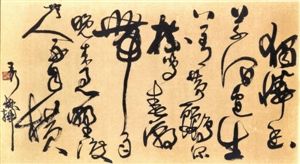 獨憐幽
草澗邊生
上有黃鸝深
樹鳴春潮
帶雨
晚來急野渡
無人舟自橫